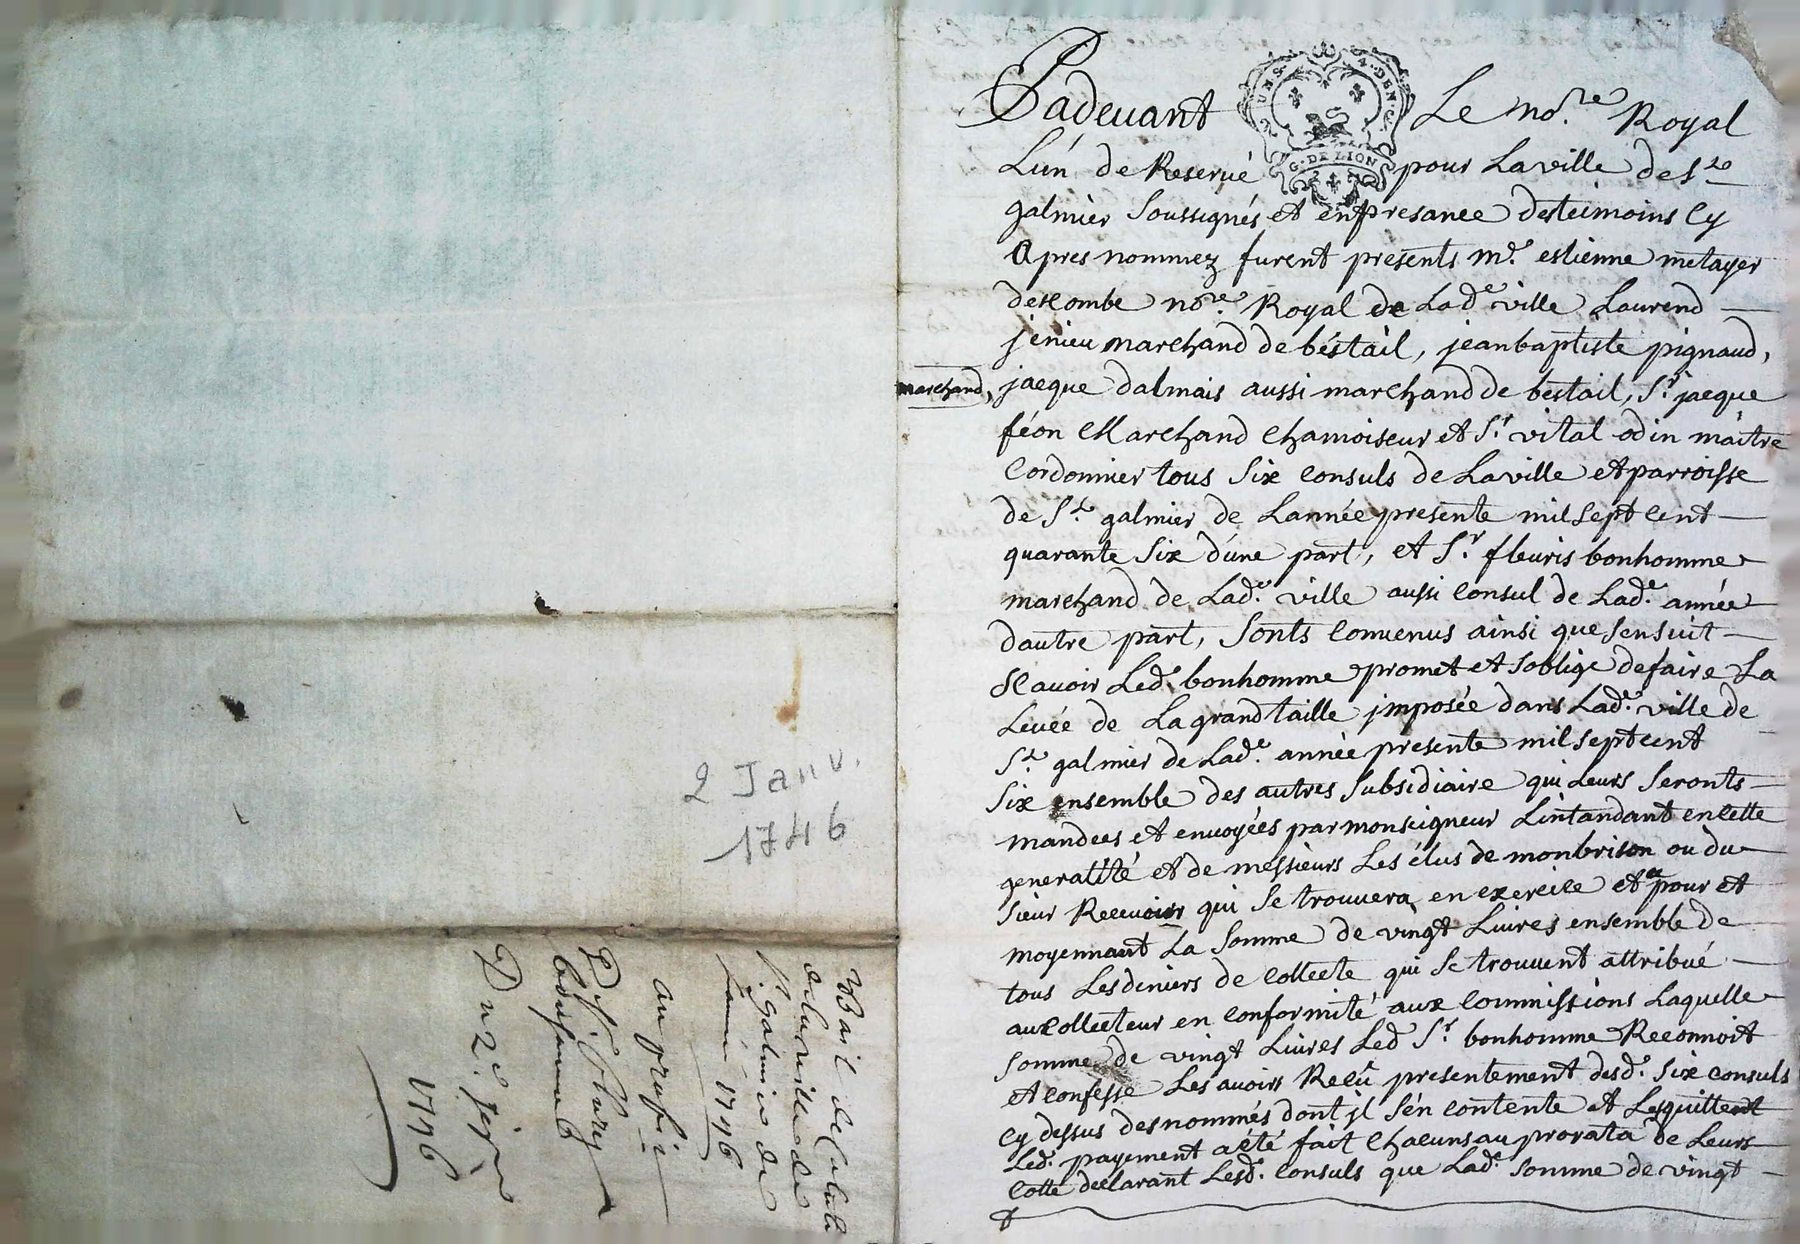 2 Janv.
1746
Bail de la taille
de la ville de
St. galmier de
lannee 1746
au profit
Du Sr. fleury
bonhomme
Du 2e. jer
1746
Padevant Le no.re Royal
SOLS. 4. DEN.
G. DE LION
Lún de Reservé pour La ville de St
galmier Soussignés et en presance des teimoins Cy
Apres nommez furent présents me. estienne metayer
descombe no.re Royal de Lad.e ville Laurend
jénieu marchand de béstail, jean baptiste pignaud,
marchand,
jacque dalmais aussi marchand de béstail, Sr. jacque
féon Marchand Chamoiseur et Sr. vital odin maitre
Cordonnier tous Six Consuls de La ville et parroisse
de St. galmier de Lannée presente mil Sept Cent
quarante Six dúne part, et Sr. fleuris bonhomme
marchand de Lad.e ville aussi Consul de Lad.e année
dautre part, Sonts Convenus ainsi que Sensuit
Scavoir Led. bonhomme promet et Soblige de faire La
Levée de La grand taille jmposée dans Lad.e ville de
St. galmier de Lad.e année presente mil Sept cent
Six ensemble des autres Subsidiaire qui Leurs Seronts
mandees et envoyées par monseigneur Lintandant en Cette
generalité et de messieurs Les élus de monbrison ou du
Sieur Recevoir qui Se trouvera en exercice et ce pour et
moyennant La Somme de vingt Livres ensemble de
tous Les deniers de Collecte qui Se trouvent attribué
aux Collecteur en Conformité aux Commissions Laquelle
Somme de vingt Livres Led Sr. bonhomme Reconnoit
et Confesse Les avoirs Reçû presentement desd. Six Consuls
Cy dessus desnommés dont jl Sén Contente et Les quittent
Led. payement a été fait Chacuns au prorata de Leurs
Cotte declarant Lesd. Consuls que Lad.e Somme de vingt